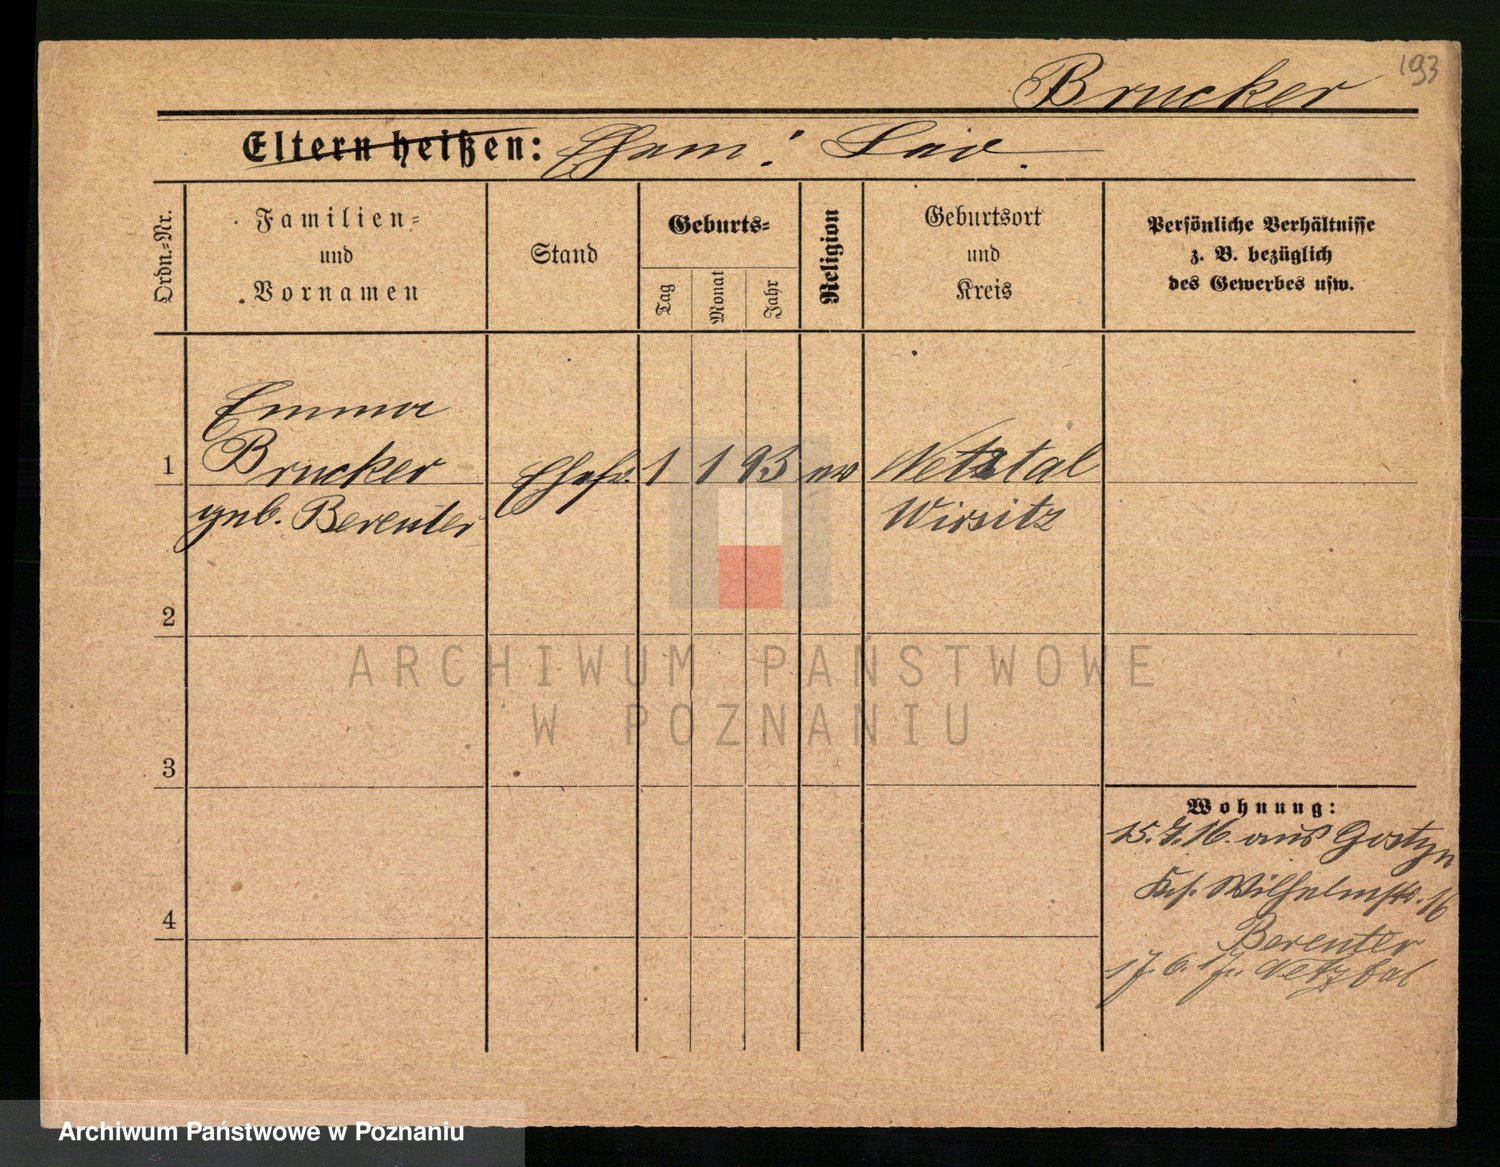 193
Brucker
Eltern heißen: Ehem: Lav.
Ordn.-Nr.
Familien-
und
Vornamen
Stand
Geburts-
Tag
Monat
Jahr
Religion
Geburtsort
und
Kreis
Persönliche Verhältnisse
z. B. bezüglich
des Gewerbes usw.
Emma
1 Brucker Ehefr. 1 1 93 ev Netztal
geb. Berenter Wirsitz
2
3
4
Wohnung:
15. 7. 16. aus Gostyn
Wilhelmstr. 16
Berenter
17. 6. 17. Netztal
ARCHIWUM PAŃSTWOWE
W POZNANIU
Archiwum Państwowe w Poznaniu